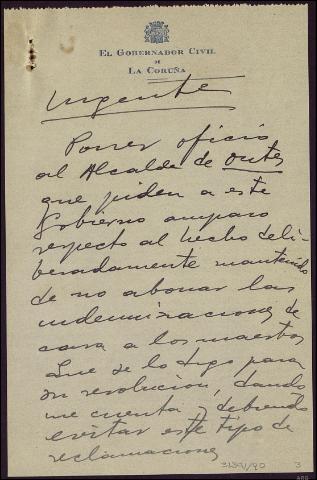 EL GOBERNADOR CIVIL
DE
LA CORUÑA
Urgente
Poner oficio
al Alcalde de Outes
que piden a este
Gobierno amparo
respecto al hecho deli-
beradamente mantenido
de no abonar las
indemnizaciones de
casa a los maestros
Que se lo digo para
su resolución, dando
me cuenta y debiendo
evitar este tipo de
reclamaciones
3